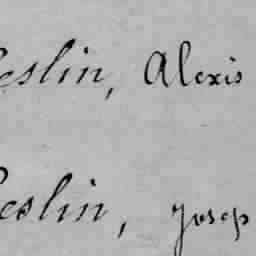 eslin, Alexis
eslin, Josep